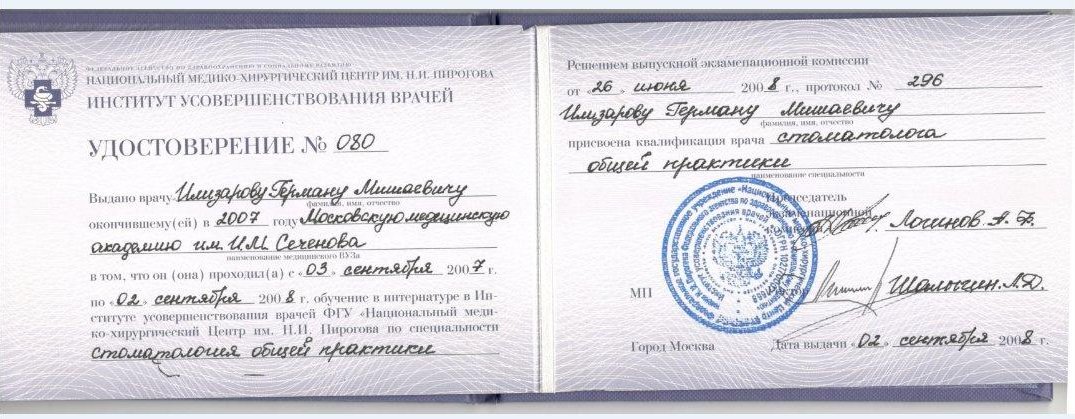 ФЕДЕРАЛЬНОЕ АГЕНТСТВО ПО ЗДРАВООХРАНЕНИЮ И СОЦИАЛЬНОМУ РАЗВИТИЮ
НАЦИОНАЛЬНЫЙ МЕДИКО-ХИРУРГИЧЕСКИЙ ЦЕНТР ИМ. Н.И. ПИРОГОВА
ИНСТИТУТ УСОВЕРШЕНСТВОВАНИЯ ВРАЧЕЙ
УДОСТОВЕРЕНИЕ № 080
Выдано врачу Илизарову Герману Мишаевичу
фамилия, имя, отчество
окончившему(ей) в 2007 году Московскую медицинскую
академию им. И.М. Сеченова
наименование медицинского ВУЗа
в том, что он (она) проходил(а) с «03» сентября 2007 г.
по «02» сентября 2008 г. обучение в интернатуре в Ин-
ституте усовершенствования врачей ФГУ «Национальный меди-
ко-хирургический Центр им. Н.И. Пирогова по специальности
стоматология общей практики
Решением выпускной экзаменационной комиссии
от «26» июня 2008 г., протокол № 296
Илизарову Герману Мишаевичу
фамилия, имя, отчество
присвоена квалификация врача стоматолога
общей практики
наименование специальности
Председатель
экзаменационной
Логинов А. Ф.
МП
Шалыгин Л.Д.
Город Москва Дата выдачи «02» сентября 2008 г.